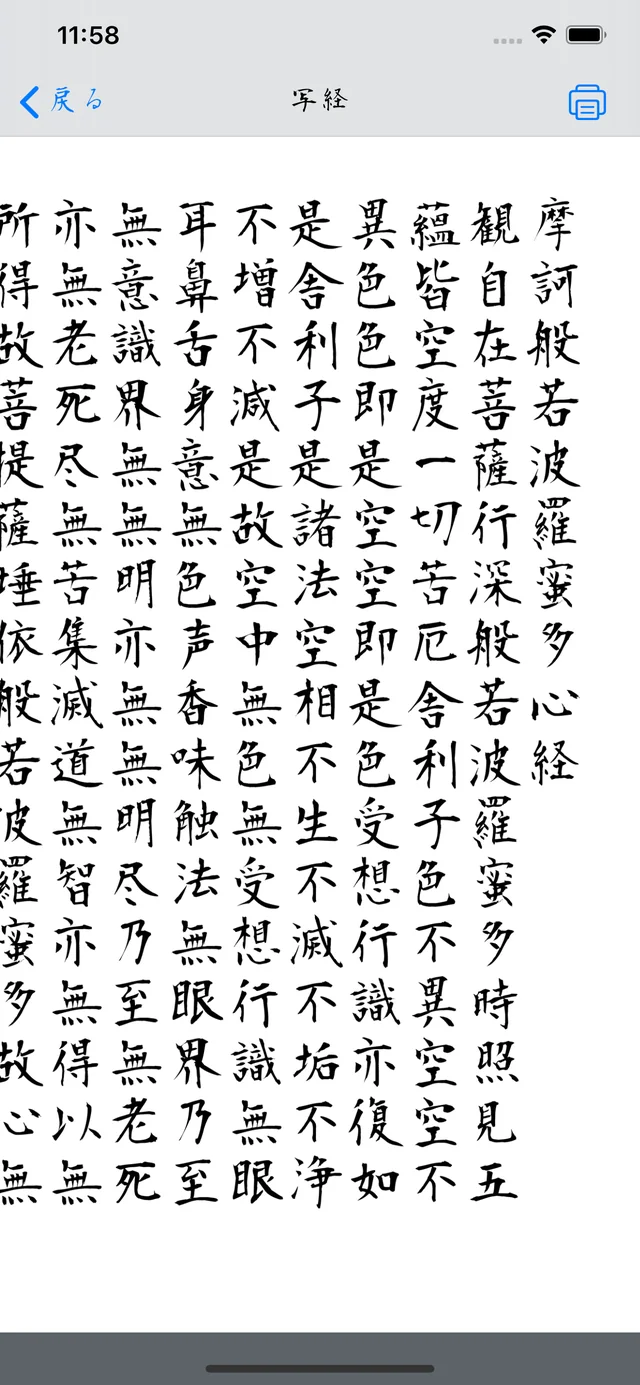 11:58
戻る
写経
摩訶般若波羅蜜多心経
観自在菩薩行深般若波羅蜜多時照見五
蘊皆空度一切苦厄舎利子色不異空空不
異色色即是空空即是色受想行識亦復如
是舎利子是諸法空相不生不滅不垢不浄
不増不減是故空中無色無受想行識無眼
耳鼻舌身意無色声香味触法無眼界乃至
無意識界無無明亦無無明尽乃至無老死
亦無老死尽無苦集滅道無智亦無得以無
所得故菩提薩埵依般若波羅蜜多故心無